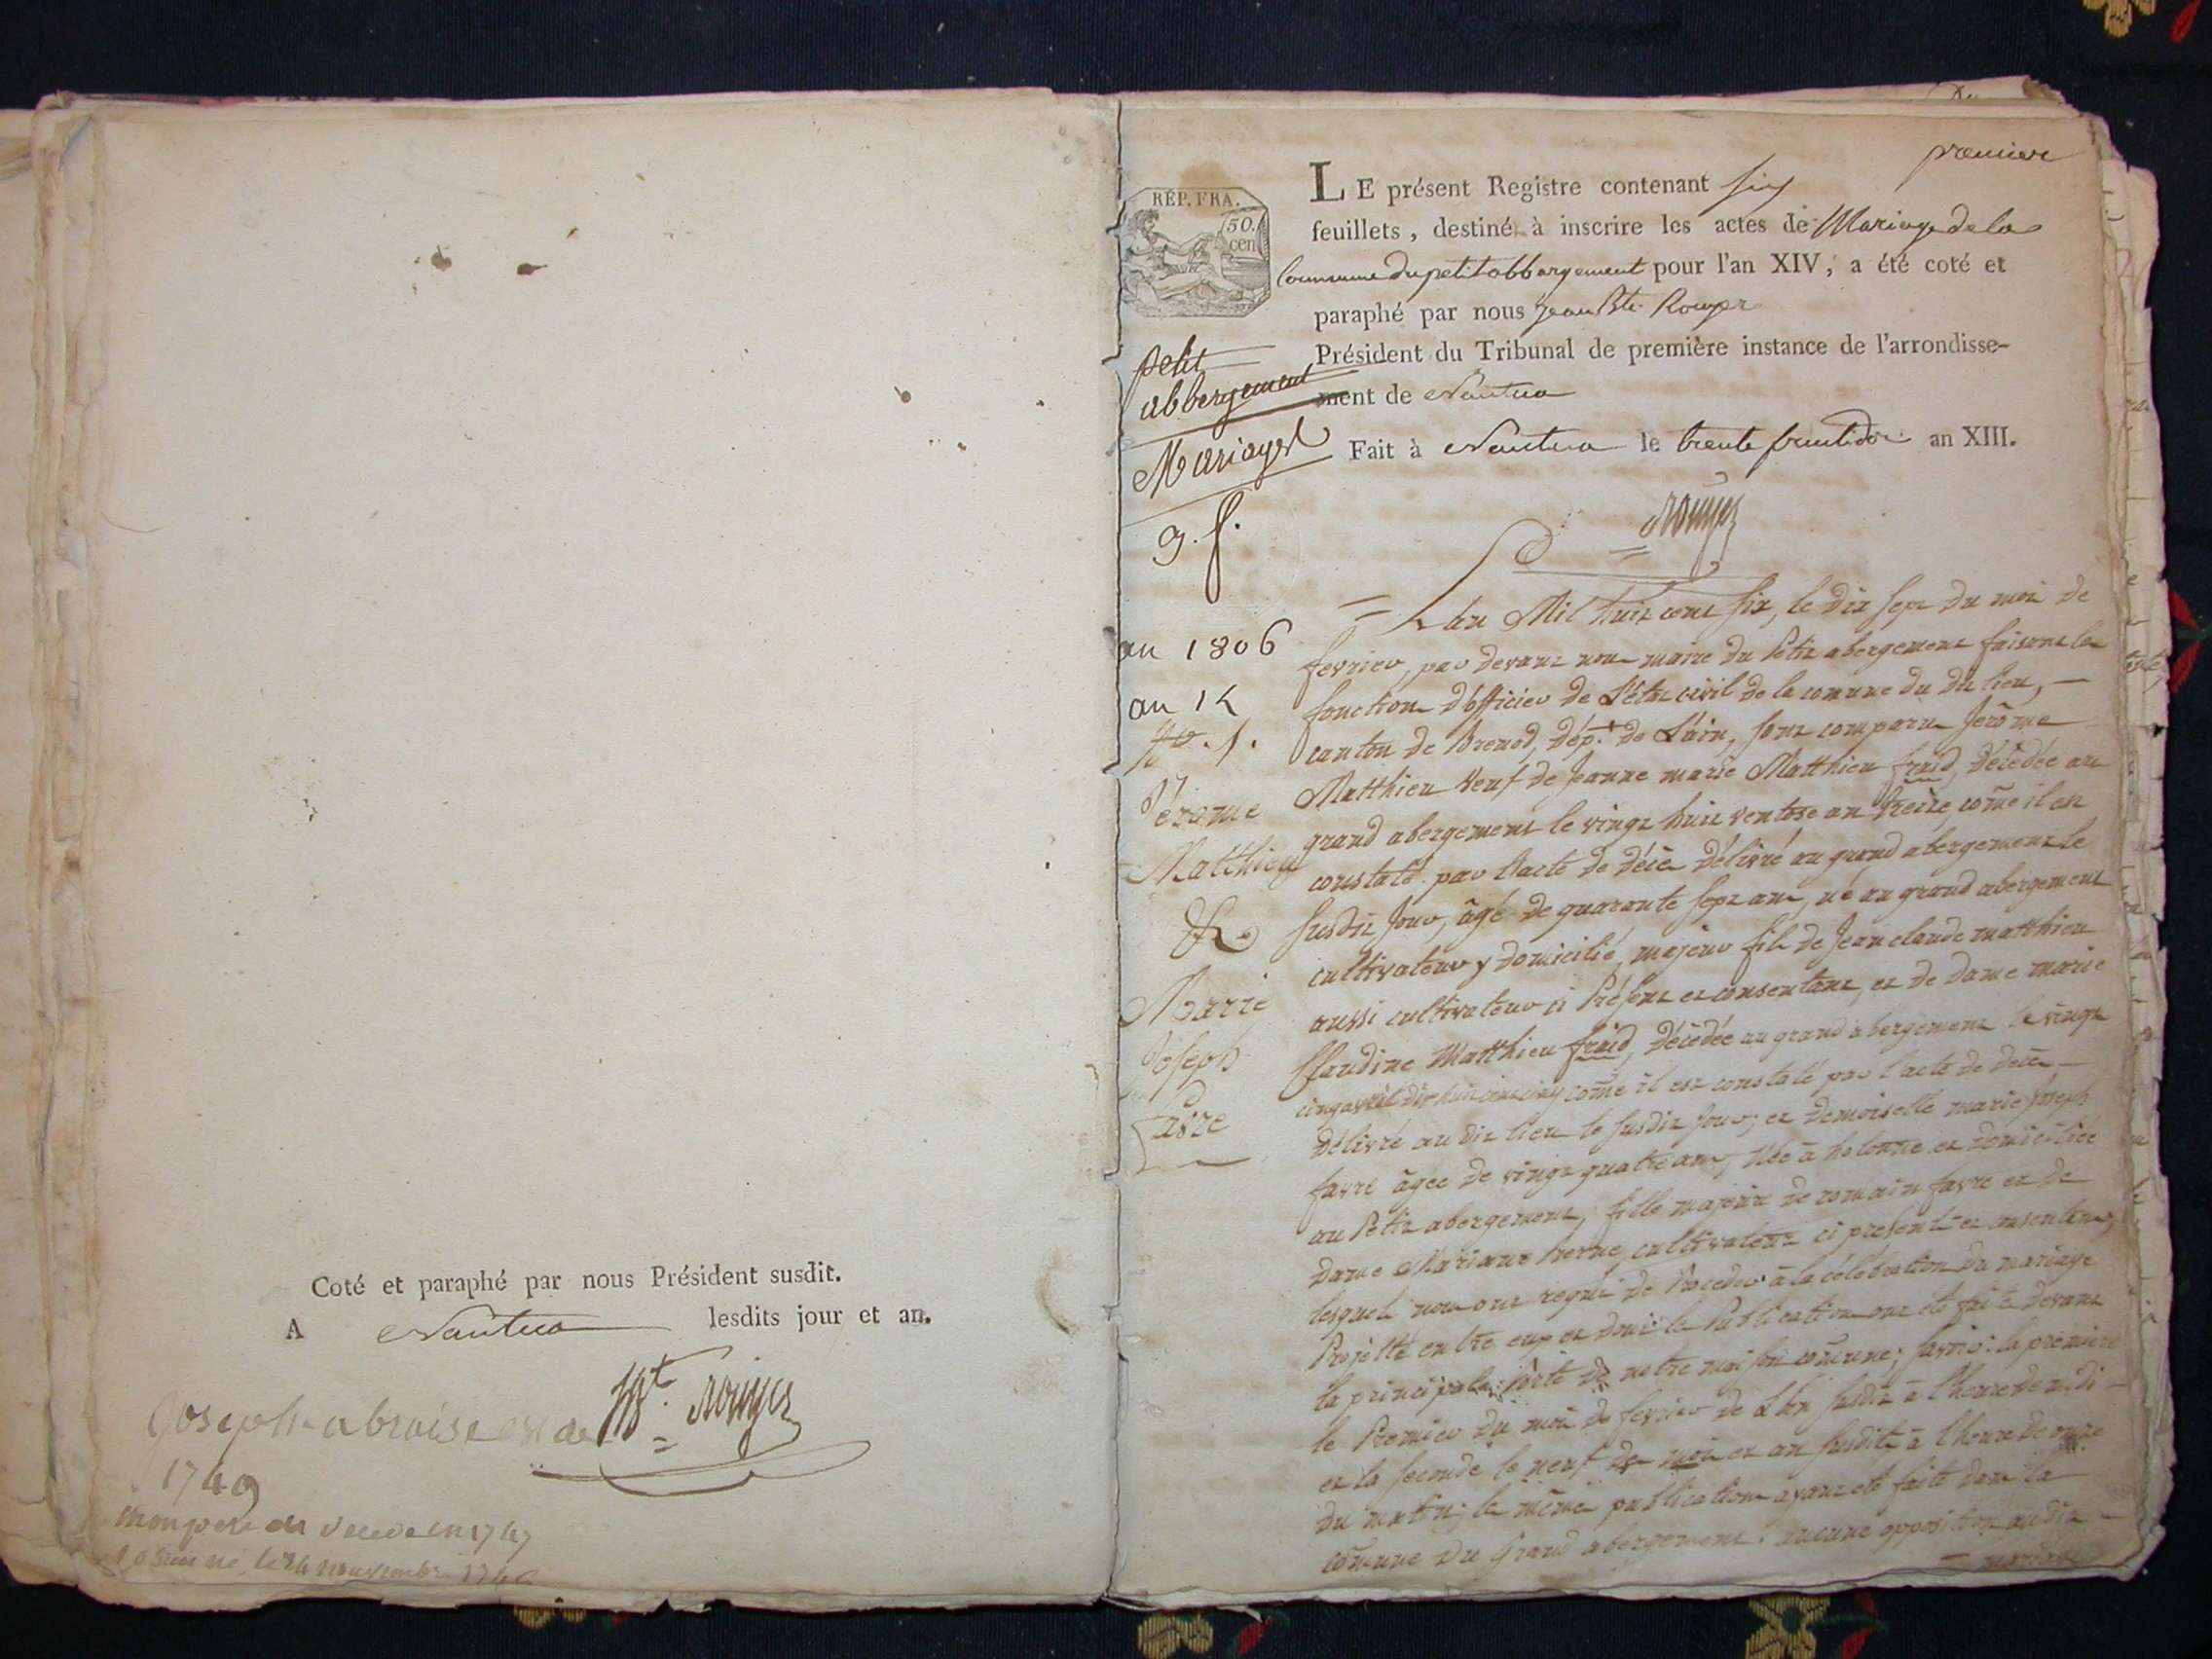 Coté et paraphé par nous Président susdit.
A Nantua lesdits jour et an.
Jbt. Rouyer
Joseph abroise
1749
mon pere en 1747
né le 24 novembre
premiere
RÉP. FRA.
50.
cen
LE présent Registre contenant six
feuillets, destiné à inscrire les actes de Mariage de la
Commune du petit abbergement pour l'an XIV, a été coté et
paraphé par nous Jean Bte Rouyer
Président du Tribunal de première instance de l'arrondisse-
ment de Nantua
Fait à Nantua le trente fructidor an XIII.
Rouyer
petit
abbergement
Mariages
9. f.
an 1806
an 14
No. 1.
Jérome
Matthieu
&
Marie
Joseph
favre
L'an Mil huit cent six, le dix sept du mois de
fevrier, par devant nous maire du Petit abergement faisant les
fonctions d'officier de L'état civil de la comune du dit lieu,
canton de Brenod, dépt. de L'ain, sont comparus Jerôme
Matthieu veuf de Jeanne marie Matthieu fraid, décèdée au
grand abergement le vingt huit ventose an treize, come il est
constaté par l'acte de décès délivré au grand abergement le
susdit Jour, âgé de quarante sept ans, né au grand abergement
cultivateur y domicilié, majeur fils de Jean claude matthieu
aussi cultivateur ci Présent et consentant, et de dame marie
Claudine Matthieu fraid, décèdée au grand abergement le vingt
cinq avril dix huit cent cinq come il est constaté par l'acte de decès
délivré au dit lieu le susdit Jour; et demoiselle marie Joseph
favre âgée de vingt quatre ans, Née à hotonne et domiciliée
au Petit abergement, fille majeure de romain favre et de
dame Mariane cultivateurs ci présents et consentans,
lesquels nous ont requis de Procéder à la célébration du mariage
Projetté entre eux et dont les Publications ont été faites devant
la principale porte de notre maison comune; savoir: la premiere
le Premier du mois de fevrier de L'An susdit à l'heure de midi
et la seconde le neuf des mois et an susdits à l'heure de onze
du matin; les mêmes publications ayant eté faites dans la
comune du Grand abergement. aucune opposition au dit
mariage